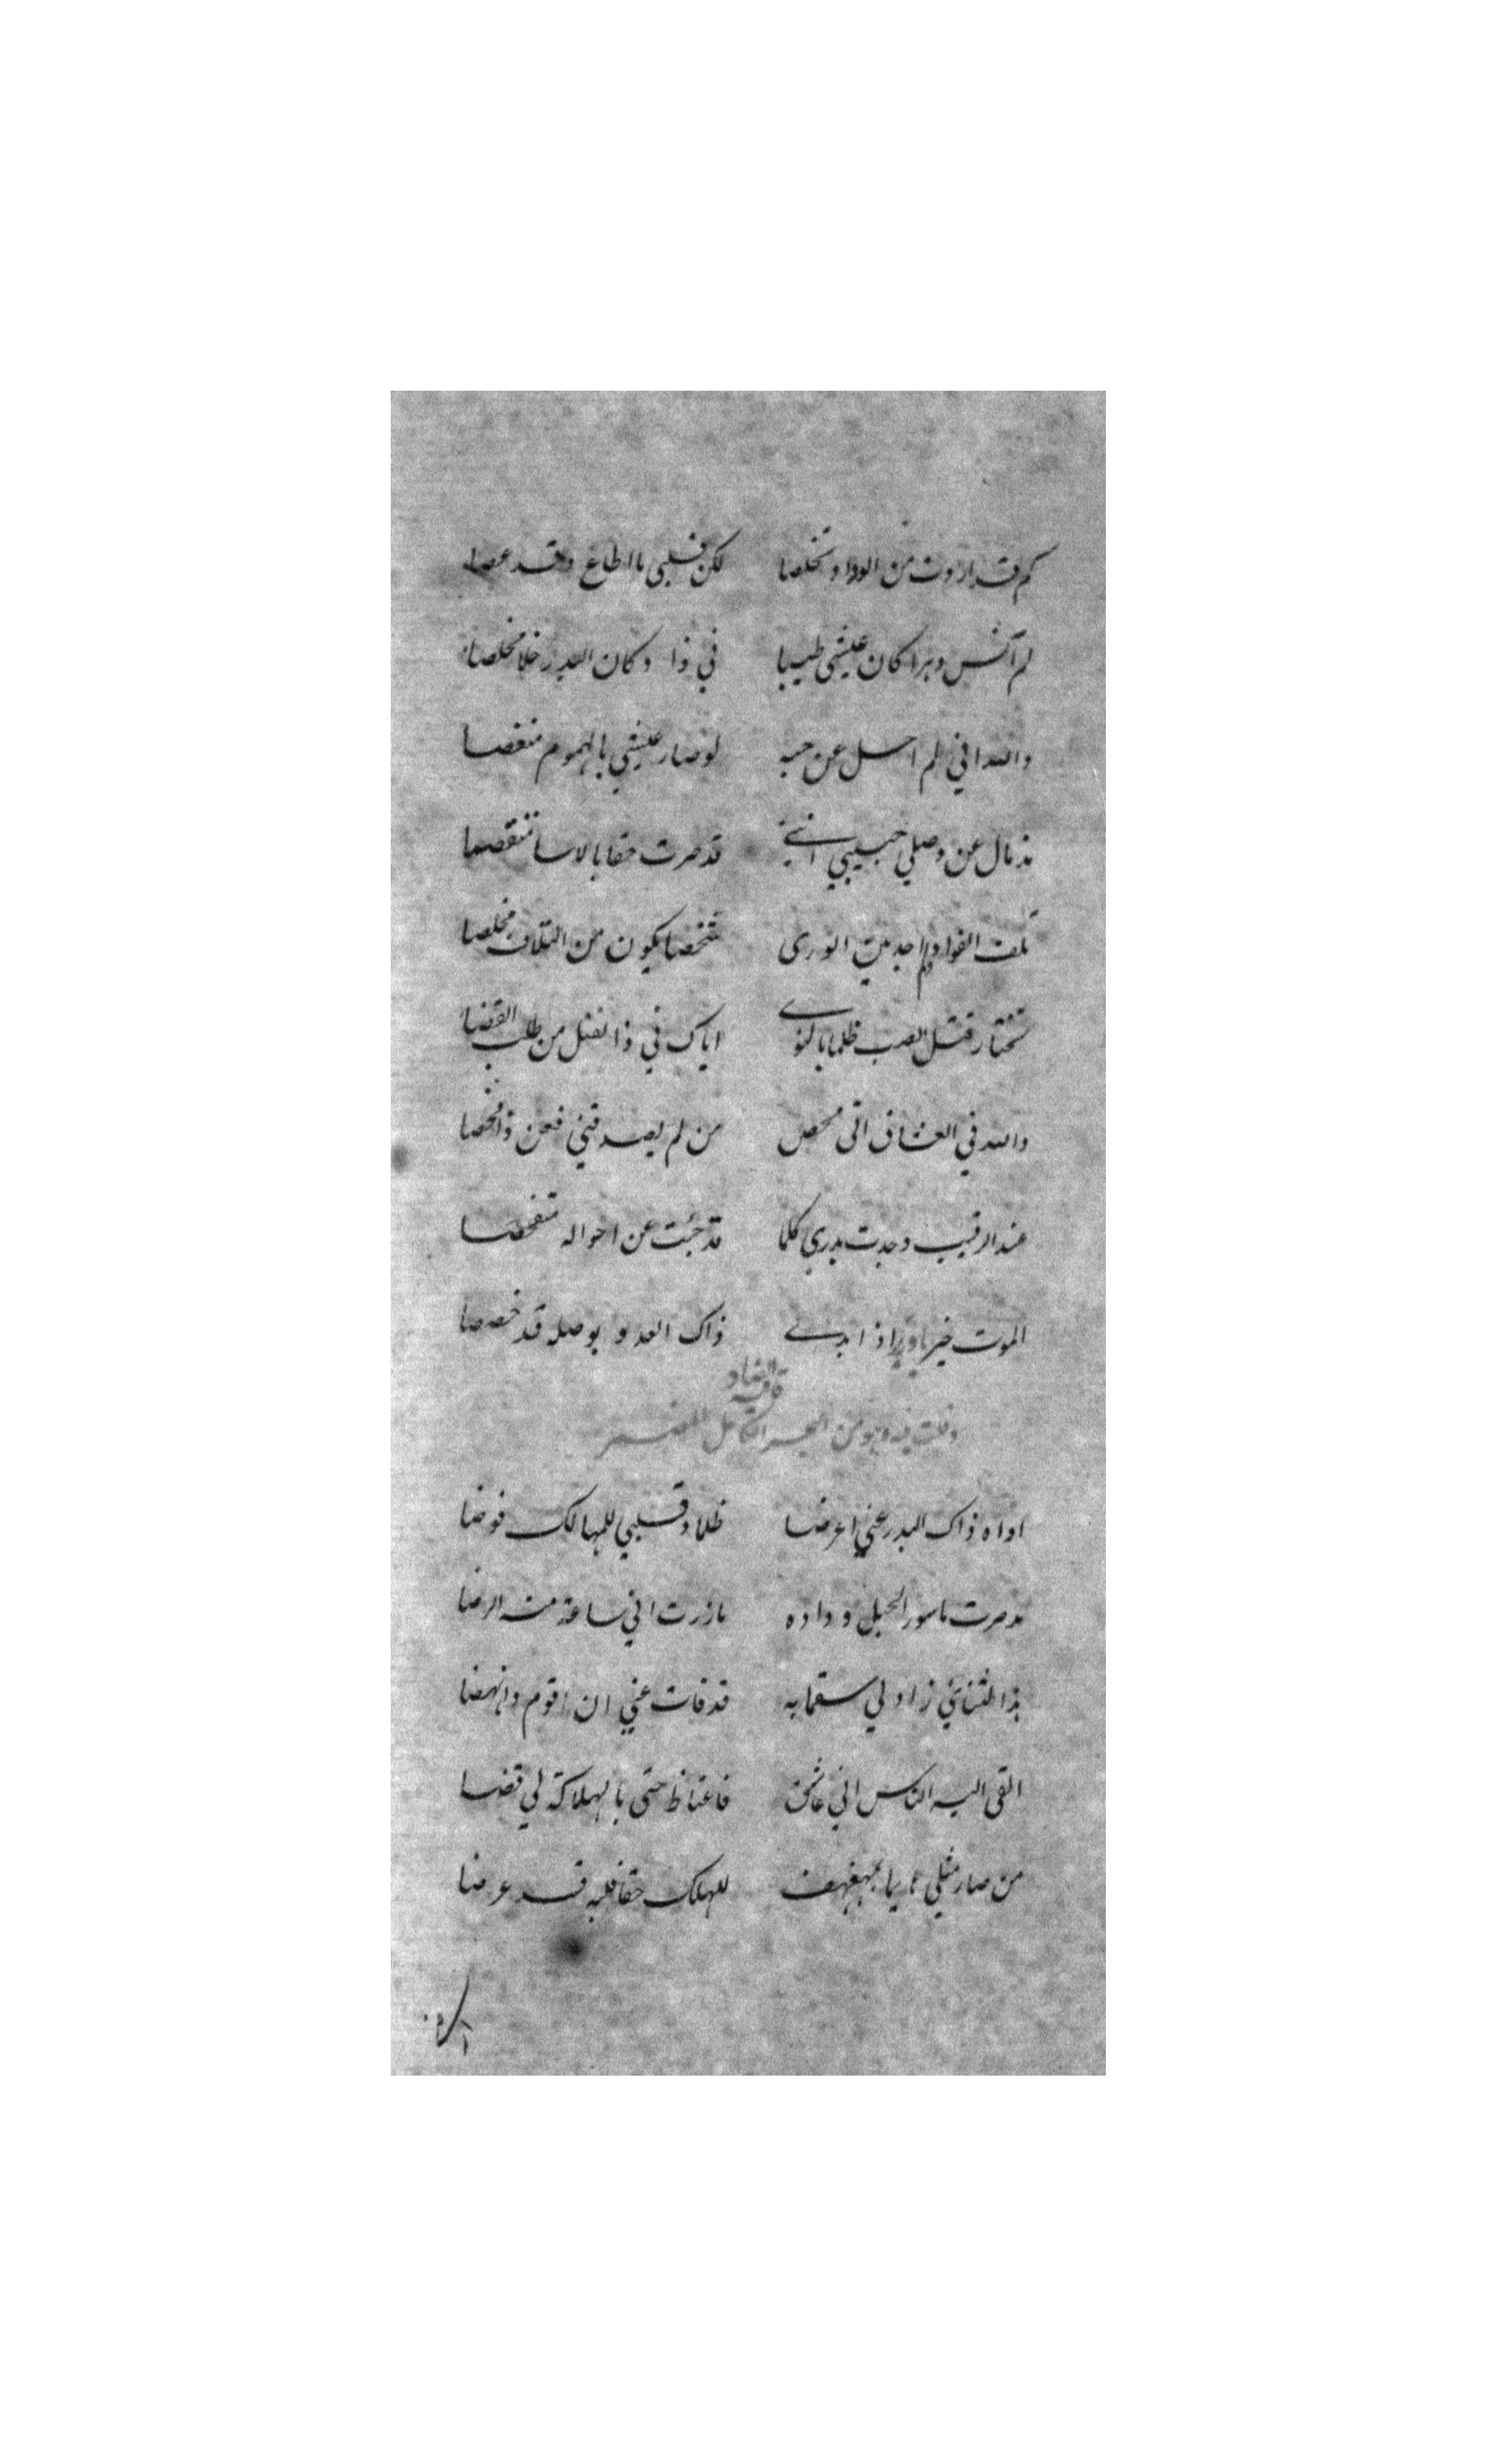 كم قد اردت من الوداد تخلصا لكن قلبي ما اطاع وقد عصا
لم آنس دهرا كان عيشي طيبا في ذا وكان البدر خلا مخلصا
والله اني لم احل عن حبه لو صار عيشي بالهموم منغصا
مذ مال عن وصلي حبيبي انني قد صرت حقا بالاسا متنقصا
تلف الفواد ولم اجد بين الورى شخصا يكون من التلاف مخلصا
تختار قتل الصب ظلما بالنوى اياك في ذا لقتل من طلب القضا
والله في العشاق اني مخلص من لم يصدقني فعن ذا فحصا
عند الرقيب وجدت بدري كلما قد جئت عن احواله متفحصا
الموت خير اذا ابدى ذاك العدو بوصله قد خصصا
قافية الضاد
وقلت فيه وهو من البحر الكامل المضمر
اواه ذاك البدر عني اعرضا ظلما وقلبي للمهالك فوضا
مذ صرت ماسورا لحبل وداده ما زرت اني ساعة منه الرضا
هذا لتنائي زاد لي سقما به قد فات عني ان اقوم وانهضا
القى اليه الناس اني عاشق فاغتاظ حتى بالهلاكة لي قضا
من صار مثلي بمهفهف للهلك حقا قلبه قد عرضا